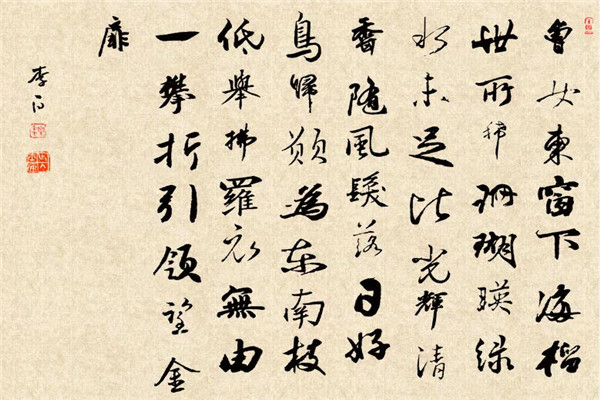 魯女東窗下海榴
世所稀珊瑚暎綠
水未足比光輝清
香隨風髮落日好
鳥歸願為東南枝
低舉拂羅衣無由
一攀折引領望金
扉
李白